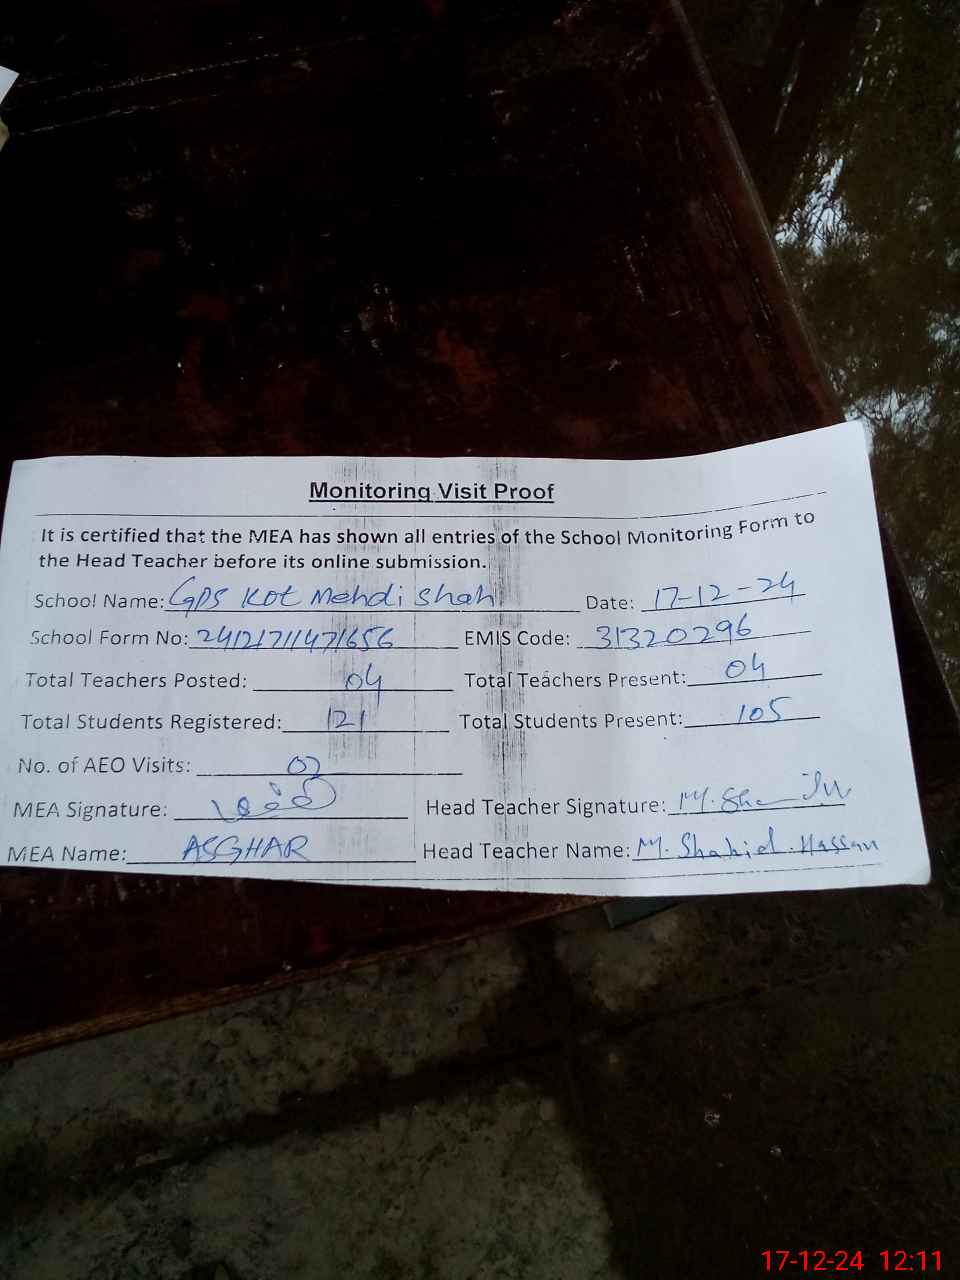 Monitoring Visit Proof
It is certified that the MEA has shown all entries of the School Monitoring Form to
the Head Teacher before its online submission.
School Name: GPS Kot Mehdi Shah Date: 17-12-24
School Form No: 2412171471656 EMIS Code: 31320296
Total Teachers Posted: 04 Total Teachers Present: 04
Total Students Registered: 121 Total Students Present: 105
No. of AEO Visits:
MEA Signature: Head Teacher Signature:
MEA Name: ASGHAR Head Teacher Name: M. Shahid. Hassan
17-12-24 12:11